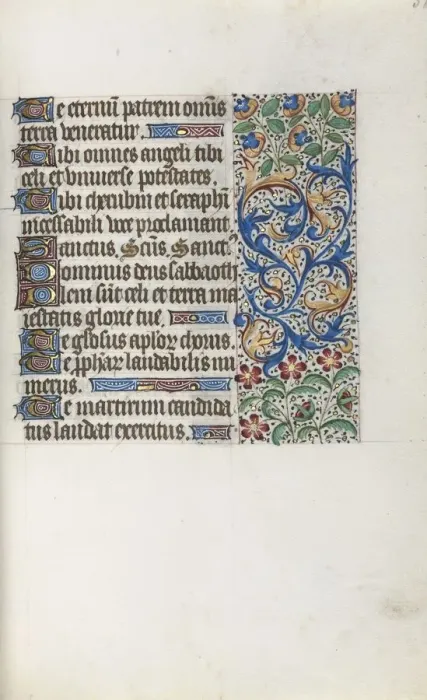 Te eternū patrem om̄is
terra veneratur.
Tibi omnes angeli tibi
celi et vniuerse potestates.
Tibi cherubin et seraphī
incessabili voce proclamant.
Sanctus. Sc̄us. Sanct᷒.
Dominus deus sabbaoth
Pleni sūt celi et terra ma
iestatis glorie tue.
Te gl̄osus apl̄oꝝ chorus.
Te ꝓphaꝝ laudabilis nu
merus.
Te martirum candida
tus laudat exercitus.